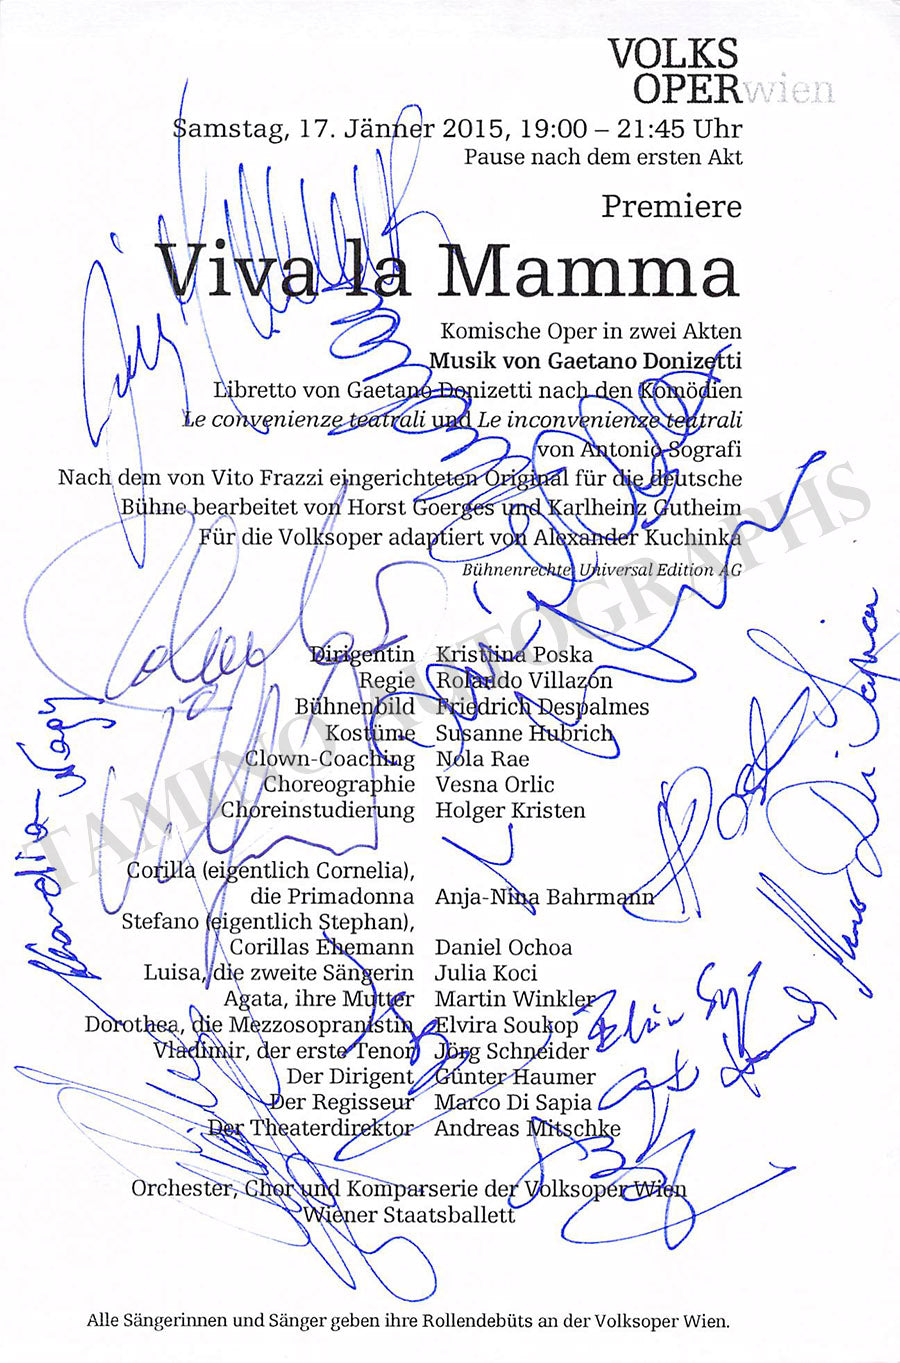 VOLKS
OPERwien
Samstag, 17. Jänner 2015, 19:00 – 21:45 Uhr
Pause nach dem ersten Akt
Premiere
Viva la Mamma
Komische Oper in zwei Akten
Musik von Gaetano Donizetti
Libretto von Gaetano Donizetti nach den Komödien
Le convenienze teatrali und Le inconvenienze teatrali
von Antonio Sografi
Nach dem von Vito Frazzi eingerichteten Original für die deutsche
Bühne bearbeitet von Horst Goerges und Karlheinz Gutheim
Für die Volksoper adaptiert von Alexander Kuchinka
Bühnenrechte: Universal Edition AG
Dirigentin Kristiina Poska
Regie Rolando Villazón
Bühnenbild Friedrich Despalmes
Kostüme Susanne Hubrich
Clown-Coaching Nola Rae
Choreographie Vesna Orlic
Choreinstudierung Holger Kristen
Corilla (eigentlich Cornelia),
die Primadonna Anja-Nina Bahrmann
Stefano (eigentlich Stephan),
Corillas Ehemann Daniel Ochoa
Luisa, die zweite Sängerin Julia Koci
Agata, ihre Mutter Martin Winkler
Dorothea, die Mezzosopranistin Elvira Soukop
Vladimir, der erste Tenor Jörg Schneider
Der Dirigent Günter Haumer
Der Regisseur Marco Di Sapia
Der Theaterdirektor Andreas Mitschke
Orchester, Chor und Komparserie der Volksoper Wien
Wiener Staatsballett
Alle Sängerinnen und Sänger geben ihre Rollendebüts an der Volksoper Wien.
TAMINO AUTOGRAPHS